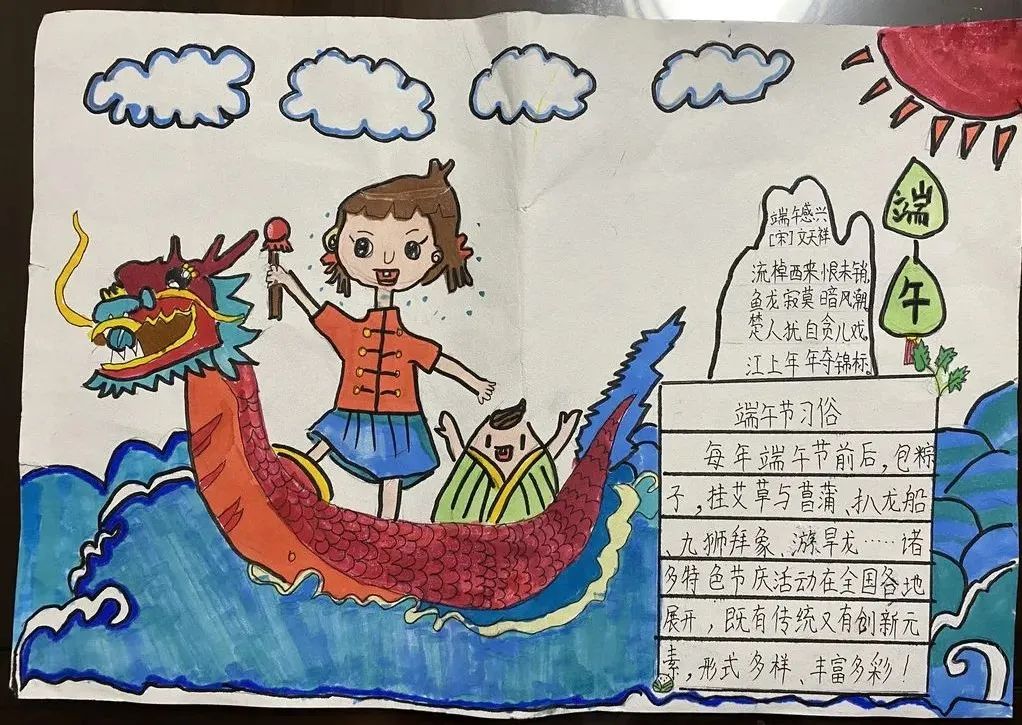 端
午
端午感兴
[宋]文天祥
流棹西来恨未销,
鱼龙寂寞暗风潮,
楚人犹自贪儿戏,
江上年年夺锦标。
端午节习俗
每年端午节前后,包粽
子,挂艾草与菖蒲、扒龙船
、九狮拜象、游旱龙……诸
多特色节庆活动在全国各地
展开,既有传统又有创新元
素,形式多样、丰富多彩!